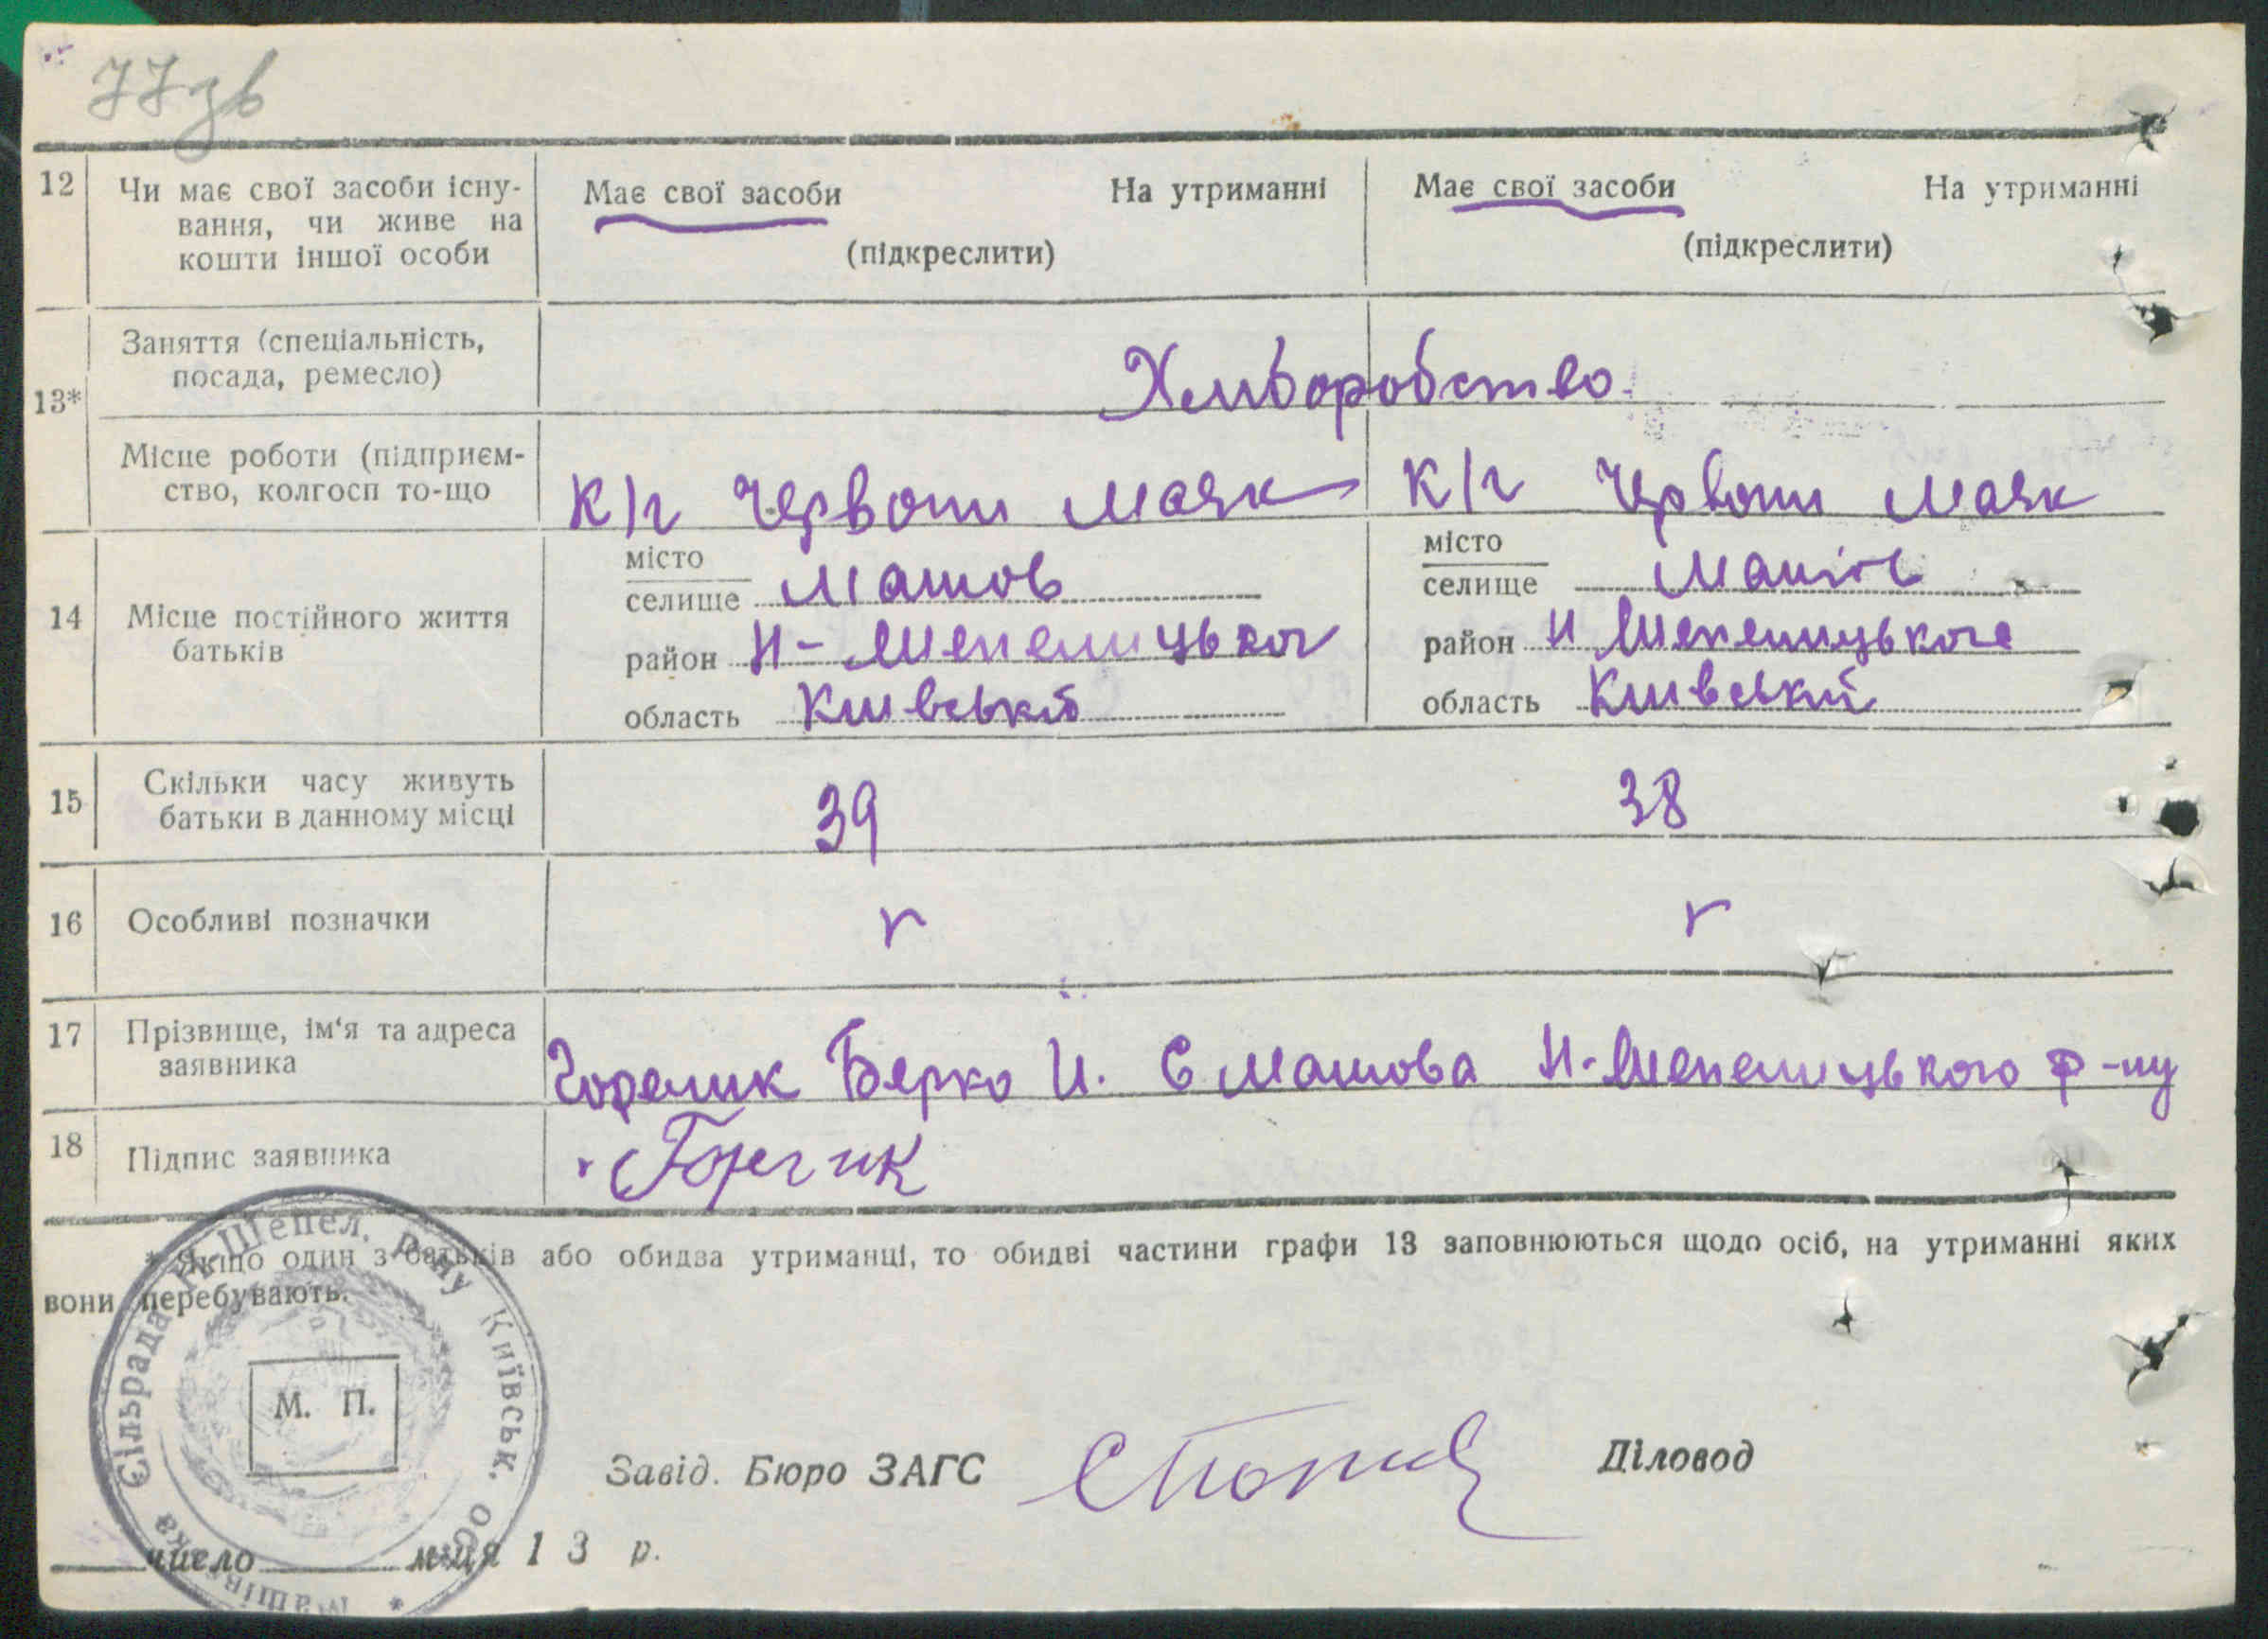 77зв
12 Чи має свої засоби існу- Має свої засоби На утриманні Має свої засоби На утриманні
вання, чи живе на
кошти іншої особи (підкреслити) (підкреслити)
13* Заняття (спеціальність,
посада, ремесло) Хліборобство.
Місце роботи (підприєм-
ство, колгосп то-що к/г Червони маяк к/г Червони маяк
14 Місце постійного життя
батьків
місто
селище Машов
район Н-Шепелицьког
область Київській
місто
селище Машов
район Н Шепелицького
область Київській
15 Скільки часу живуть
батьки в данному місці 39 38
16 Особливі позначки
17 Прізвище, ім'я та адреса
заявника Горелик Берко И. С Машова Н-Шепелицького р-ну
18 Підпис заявника Горелик
* Якщо один з батьків або обидва утриманці, то обидві частини графи 13 заповнюються щодо осіб, на утриманні яких
вони перебувають.
Машівська Сільрада Н-Шепел. р-ну Київськ. обл. *
М. П.
Завід. Бюро ЗАГС Діловод
число м-ця 13 р.